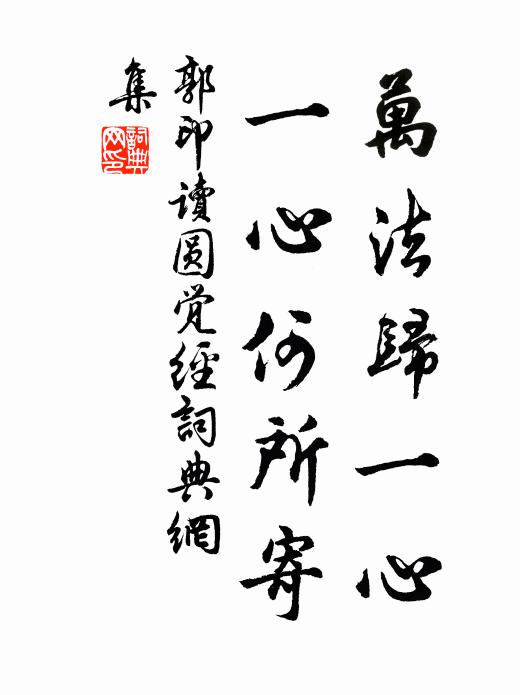 萬法歸一心
一心何所寄
郭印讀圓覺經詞典網
集
詞典网印